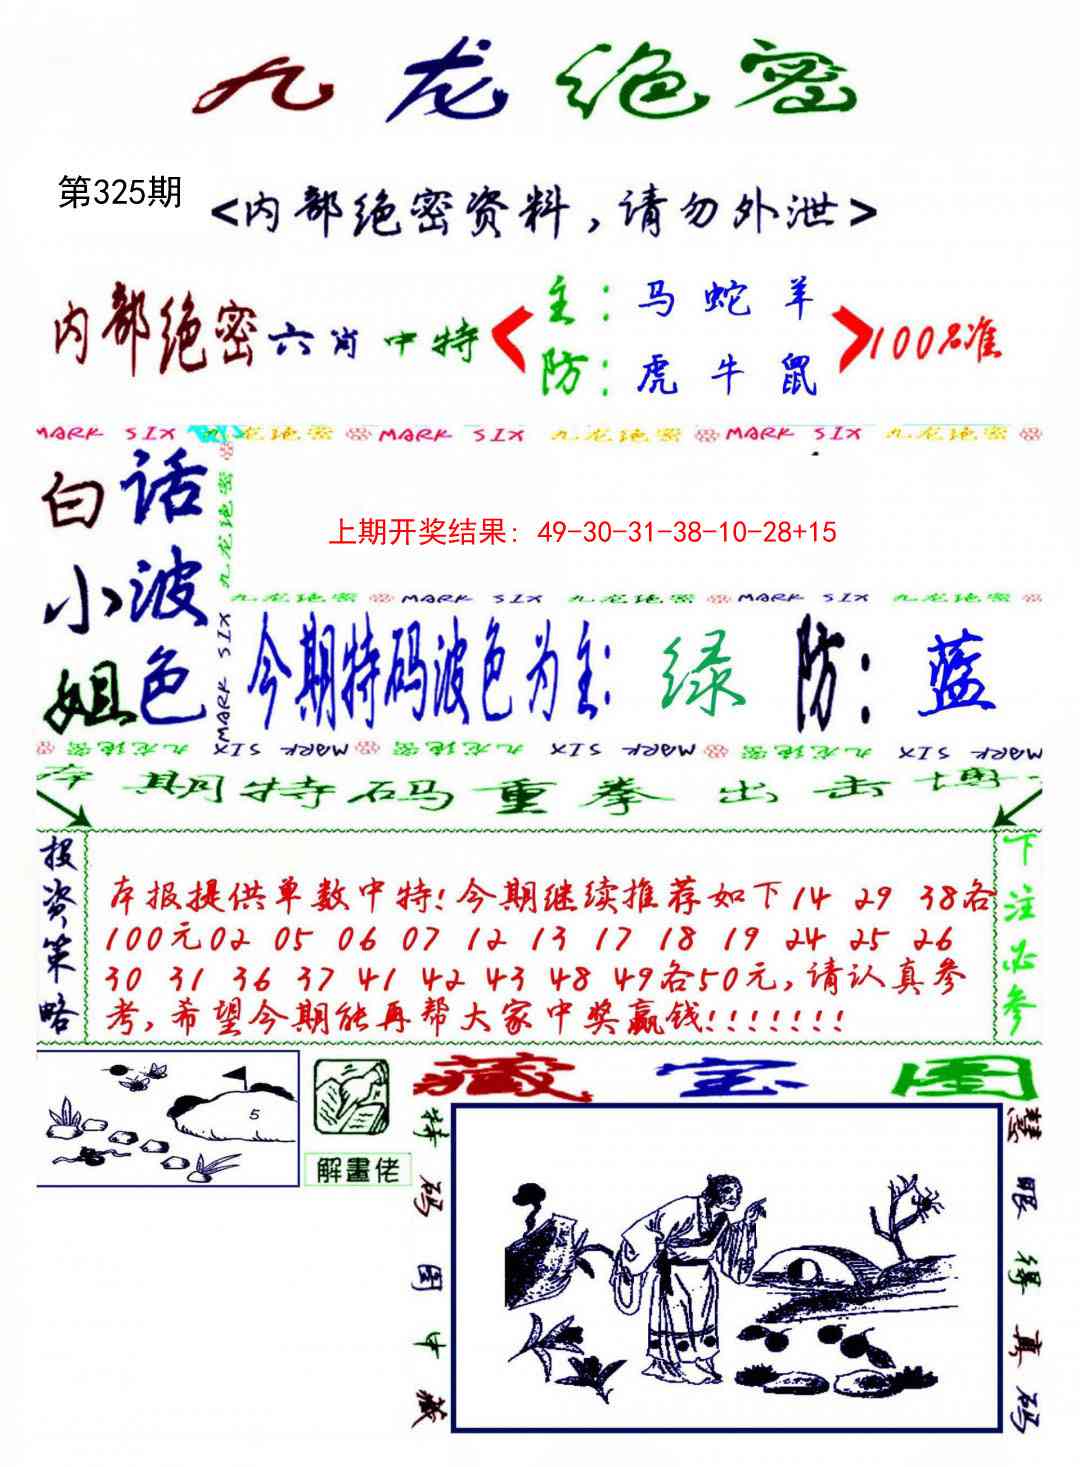 九龙绝密
第325期
<内部绝密资料，请勿外泄>
内部绝密六肖中特
主：马 蛇 羊
防：虎 牛 鼠
100%准
MARK SIX 九龙绝密 MARK SIX 九龙绝密 MARK SIX 九龙绝密
白话
小波
姐色
九龙绝密
MARK SIX
上期开奖结果：49-30-31-38-10-28+15
九龙绝密 MARK SIX 九龙绝密 MARK SIX 九龙绝密
今期特码波色为主：绿 防：蓝
九龙绝密 MARK SIX 九龙绝密 MARK SIX 九龙绝密 MARK SIX
本期特码重拳出击博
投资策略
本报提供单数中特!今期继续推荐如下14 29 38各
100元02 05 06 07 12 13 17 18 19 24 25 26
30 31 36 37 41 42 43 48 49各50元,请认真参
考,希望今期能再帮大家中奖赢钱!!!!!!!
下注必参
5
解畫佬
藏宝图
特码图中藏
慧眼得真码